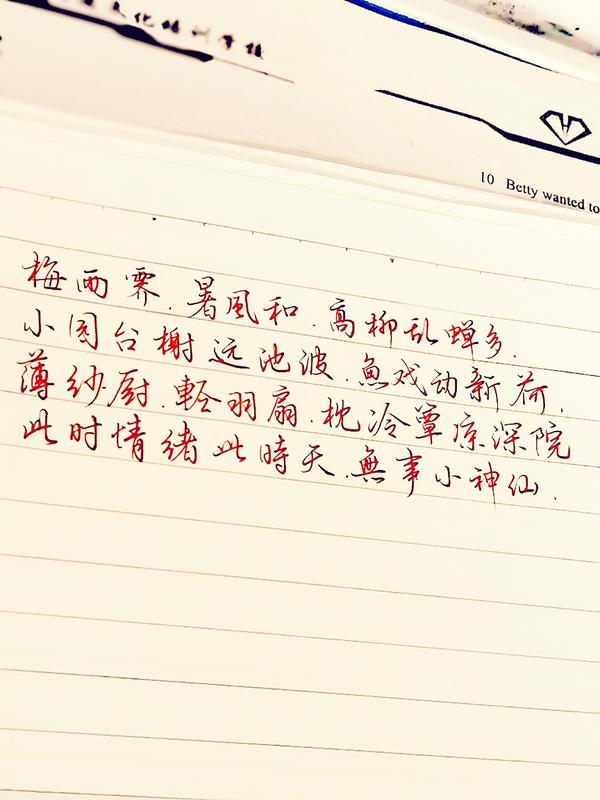 文化培训学校
10 Betty wanted to
梅雨霁.暑風和.高柳乱蝉多.
小园台榭远池波.魚戏动新荷.
薄纱厨.輕羽扇.枕冷簟凉深院
此时情绪此時天.無事小神仙.